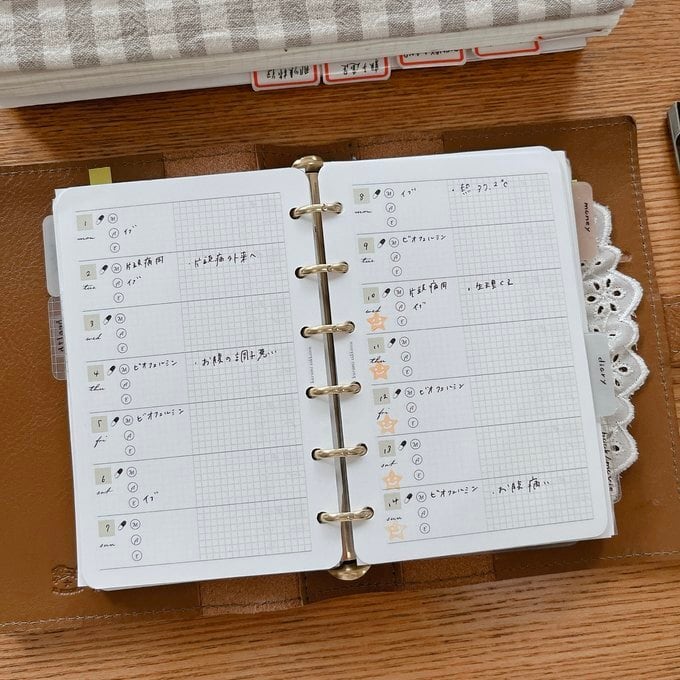 1 M
A イブ
mon E
2 M 片頭痛用 ・片頭痛外来へ
tue A イブ
E
3 M
wed A
E
4 M ビオフェルミン ・お腹の調子悪い
thu A
E
5 M ビオフェルミン
fri A
E
6 M
sat A
E イブ
7 M
sun A
E
8 M イブ ・熱 37.2℃
mon A
E
9 M ビオフェルミン
tue A
E
10 M 片頭痛用 ・生理くる
wed A イブ
E
11 M
thu A
E
12 M ビオフェルミン
fri A
E
13 M
sat A
E
14 M ビオフェルミン ・お腹痛い
sun A
E
money
diary
book/movie